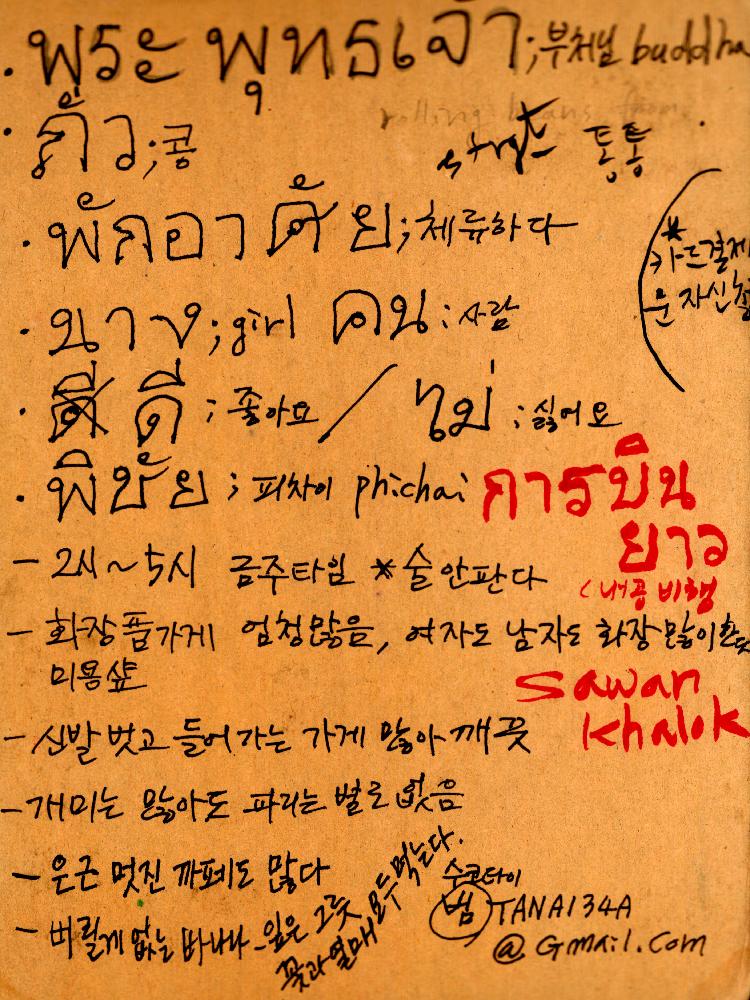 · พระ พุทธเจ้า ; 부처님 buddha
· ถั่ว ; 콩
통통
· พักอาศัย ; 체류하다
*
카드결제
은 자신
· นาง ; girl คน : 사람
· ดี ; 좋아요 / ไม่ ; 싫어요
· พิชัย ; 피차이 phichai
การบิน
ยาว
(내공 비행
- 2시~5시 금주타임 *술 안판다
- 화장품가게 엄청많음, 여자도 남자도 화장 많이한다
미용샾
sawan
khalok
- 신발 벗고 들어가는 가게 많아 깨끗
- 개미는 많아도 파리는 별로 없음
- 은근 멋진 까페도 많다
- 버릴게 없는 바나나 잎은 그릇
꽃과 열매 모두 먹는다.
수코타이
범 TANA134A
@ Gmail.com